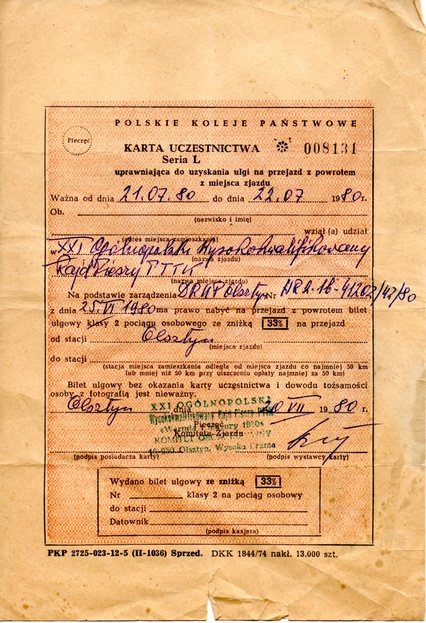 POLSKIE KOLEJE PAŃSTWOWE
Pieczęć
KARTA UCZESTNICTWA
008131
Seria L
uprawniająca do uzyskania ulgi na przejazd z powrotem
z miejsca zjazdu
Ważna od dnia 21.07.80 do dnia 22.07 1980 r.
Ob.
(nazwisko i imię)
wziął (a) udział
(adres miejsca zamieszkania)
w XXI Ogólnopolski Wysokokwalifikowany
(nazwa zjazdu)
Rajd Pieszy PTTK
(nazwa miejsca zjazdu)
Na podstawie zarządzenia DRKP Olsztyn Nr HR1.1b-41202/42/80
z dnia 25.VI 1980 ma prawo nabyć na przejazd z powrotem bilet
ulgowy klasy 2 pociągu osobowego ze zniżką 33% na przejazd
od stacji Olsztyn
(miejsce zjazdu)
do stacji
(stacja miejsca zamieszkania odległa od miejsca zjazdu co najmniej 50 km
lub mniej niż 50 km przy uiszczeniu opłaty najmniej za 50 km)
Bilet ulgowy bez okazania karty uczestnictwa i dowodu tożsamości
osoby z fotografią jest nieważny.
Olsztyn dnia 20 VII 1980 r.
XXI OGÓLNOPOLSKI
Wysokokwalifikowany Rajd Pieszy PTTK
Pieczęć
Komitetu Zjazdu
KOMITET
Olsztyn, Wysoka Brama
(podpis posiadacza karty)
(podpis wystawcy karty)
Wydano bilet ulgowy ze zniżką 33%
Nr klasy 2 na pociąg osobowy
do stacji
Datownik
(podpis kasjera)
PKP 2725-023-12-5 (II-1036) Sprzed. DKK 1844/74 nakł. 13.000 szt.